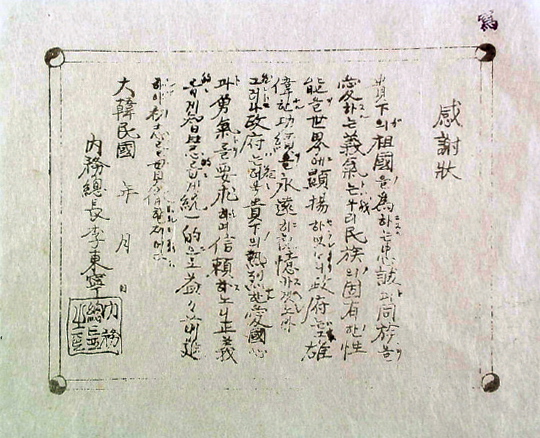 寫
感謝狀
貴下의祖國을爲하는忠誠과同族을
愛하는義氣는우리民族의固有한性
能을世界에顯揚하엿으니政府는雄
偉한功績을永遠히記憶하겟노라
그러나政府는더욱貴下의熱烈한愛國心
과勇氣를要求하며信賴하노니正義
統一的으로益々前進
하야初志를貫
大韓民國 年 月 日
內務總長李東寧